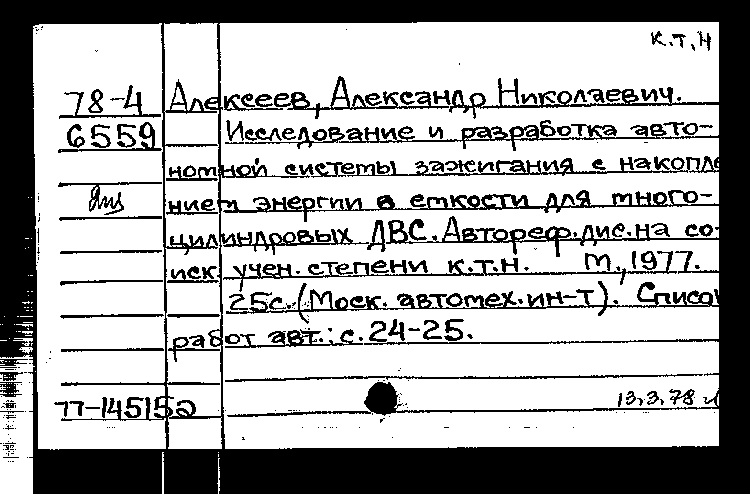 к.т.н
78-4 Алексеев, Александр Николаевич.
6559 Исследование и разработка авто-
номной системы зажигания с накопле
нием энергии в емкости для много-
цилиндровых ДВС. Автореф. дис. на со-
иск. учен. степени к.т.н. М., 1977.
25с. (Моск. автомех. ин-т). Список
работ авт.: с. 24-25.
77-14515
13.3.78